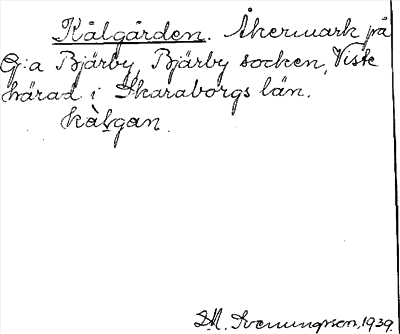 Kålgården. Åkermark på
G:a Bjärby, Bjärby socken, Viste
härad i Skaraborgs län.
kàlgan.
D.M. Svenungsson, 1939.